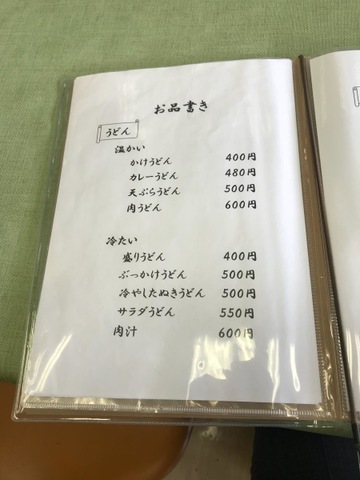 お品書き
うどん
温かい
かけうどん 400円
カレーうどん 480円
天ぷらうどん 500円
肉うどん 600円
冷たい
盛りうどん 400円
ぶっかけうどん 500円
冷やしたぬきうどん 500円
サラダうどん 550円
肉汁 600円